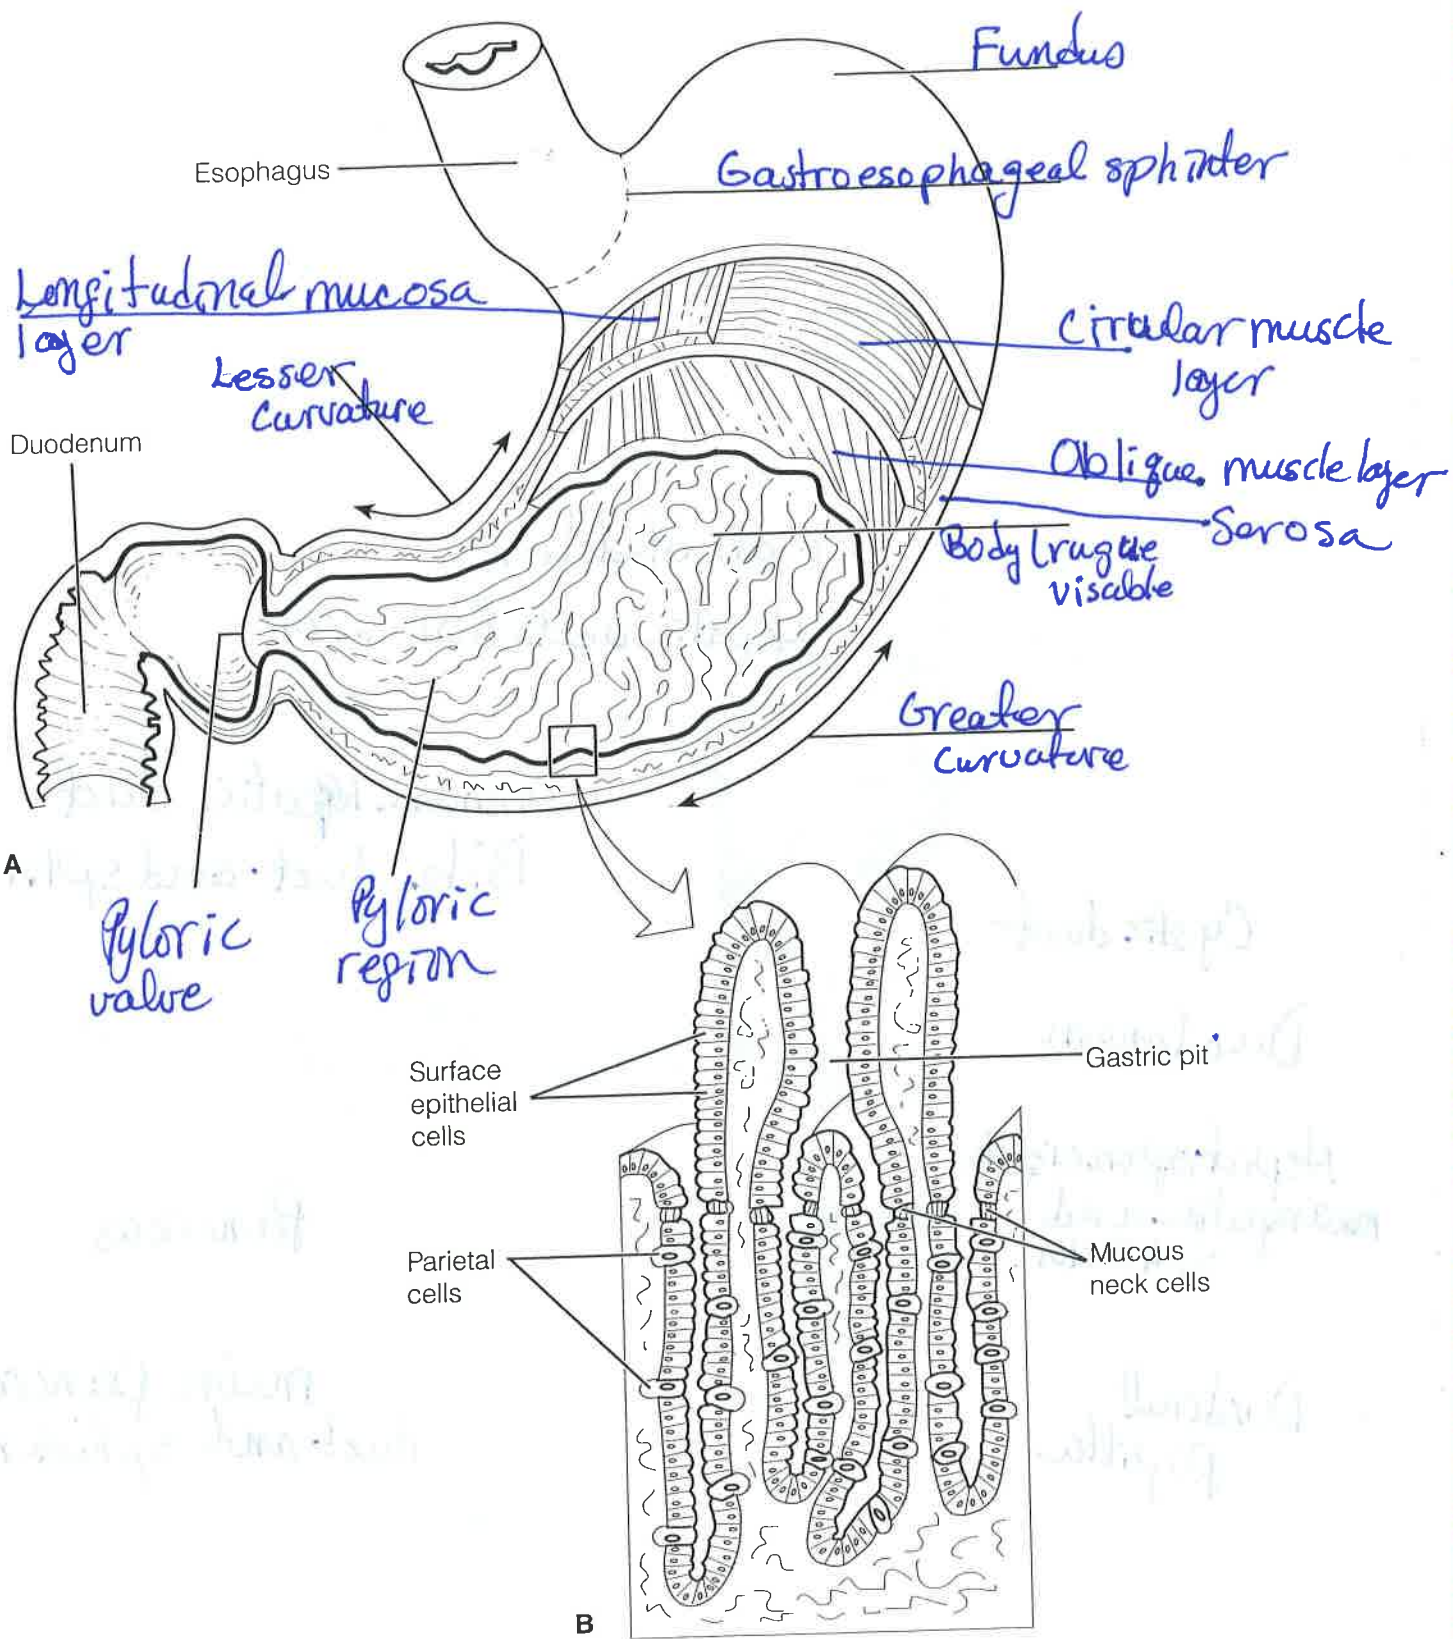 Fundus
Esophagus
Gastroesophageal sphinter
Longitudinal mucosa
layer
Circular muscle
layer
Lesser
Curvature
Duodenum
Oblique muscle layer
Serosa
Body (rugae
visable
Greater
Curvature
A
Pyloric
valve
Pyloric
region
Surface
epithelial
cells
Gastric pit
Parietal
cells
Mucous
neck cells
B